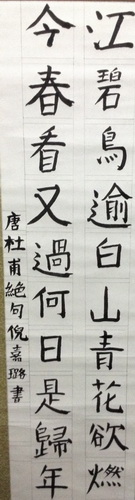 江碧鳥逾白山青花欲燃
今春看又過何日是歸年
唐杜甫絕句倪嘉璐書